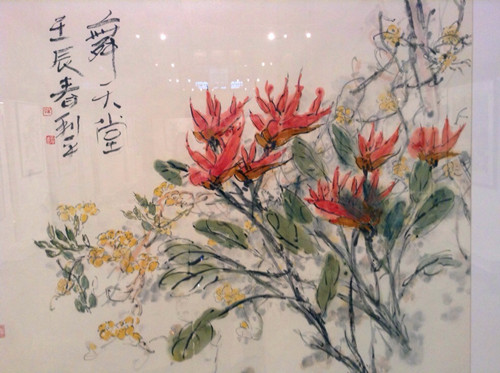 舞天堂
壬辰春利平